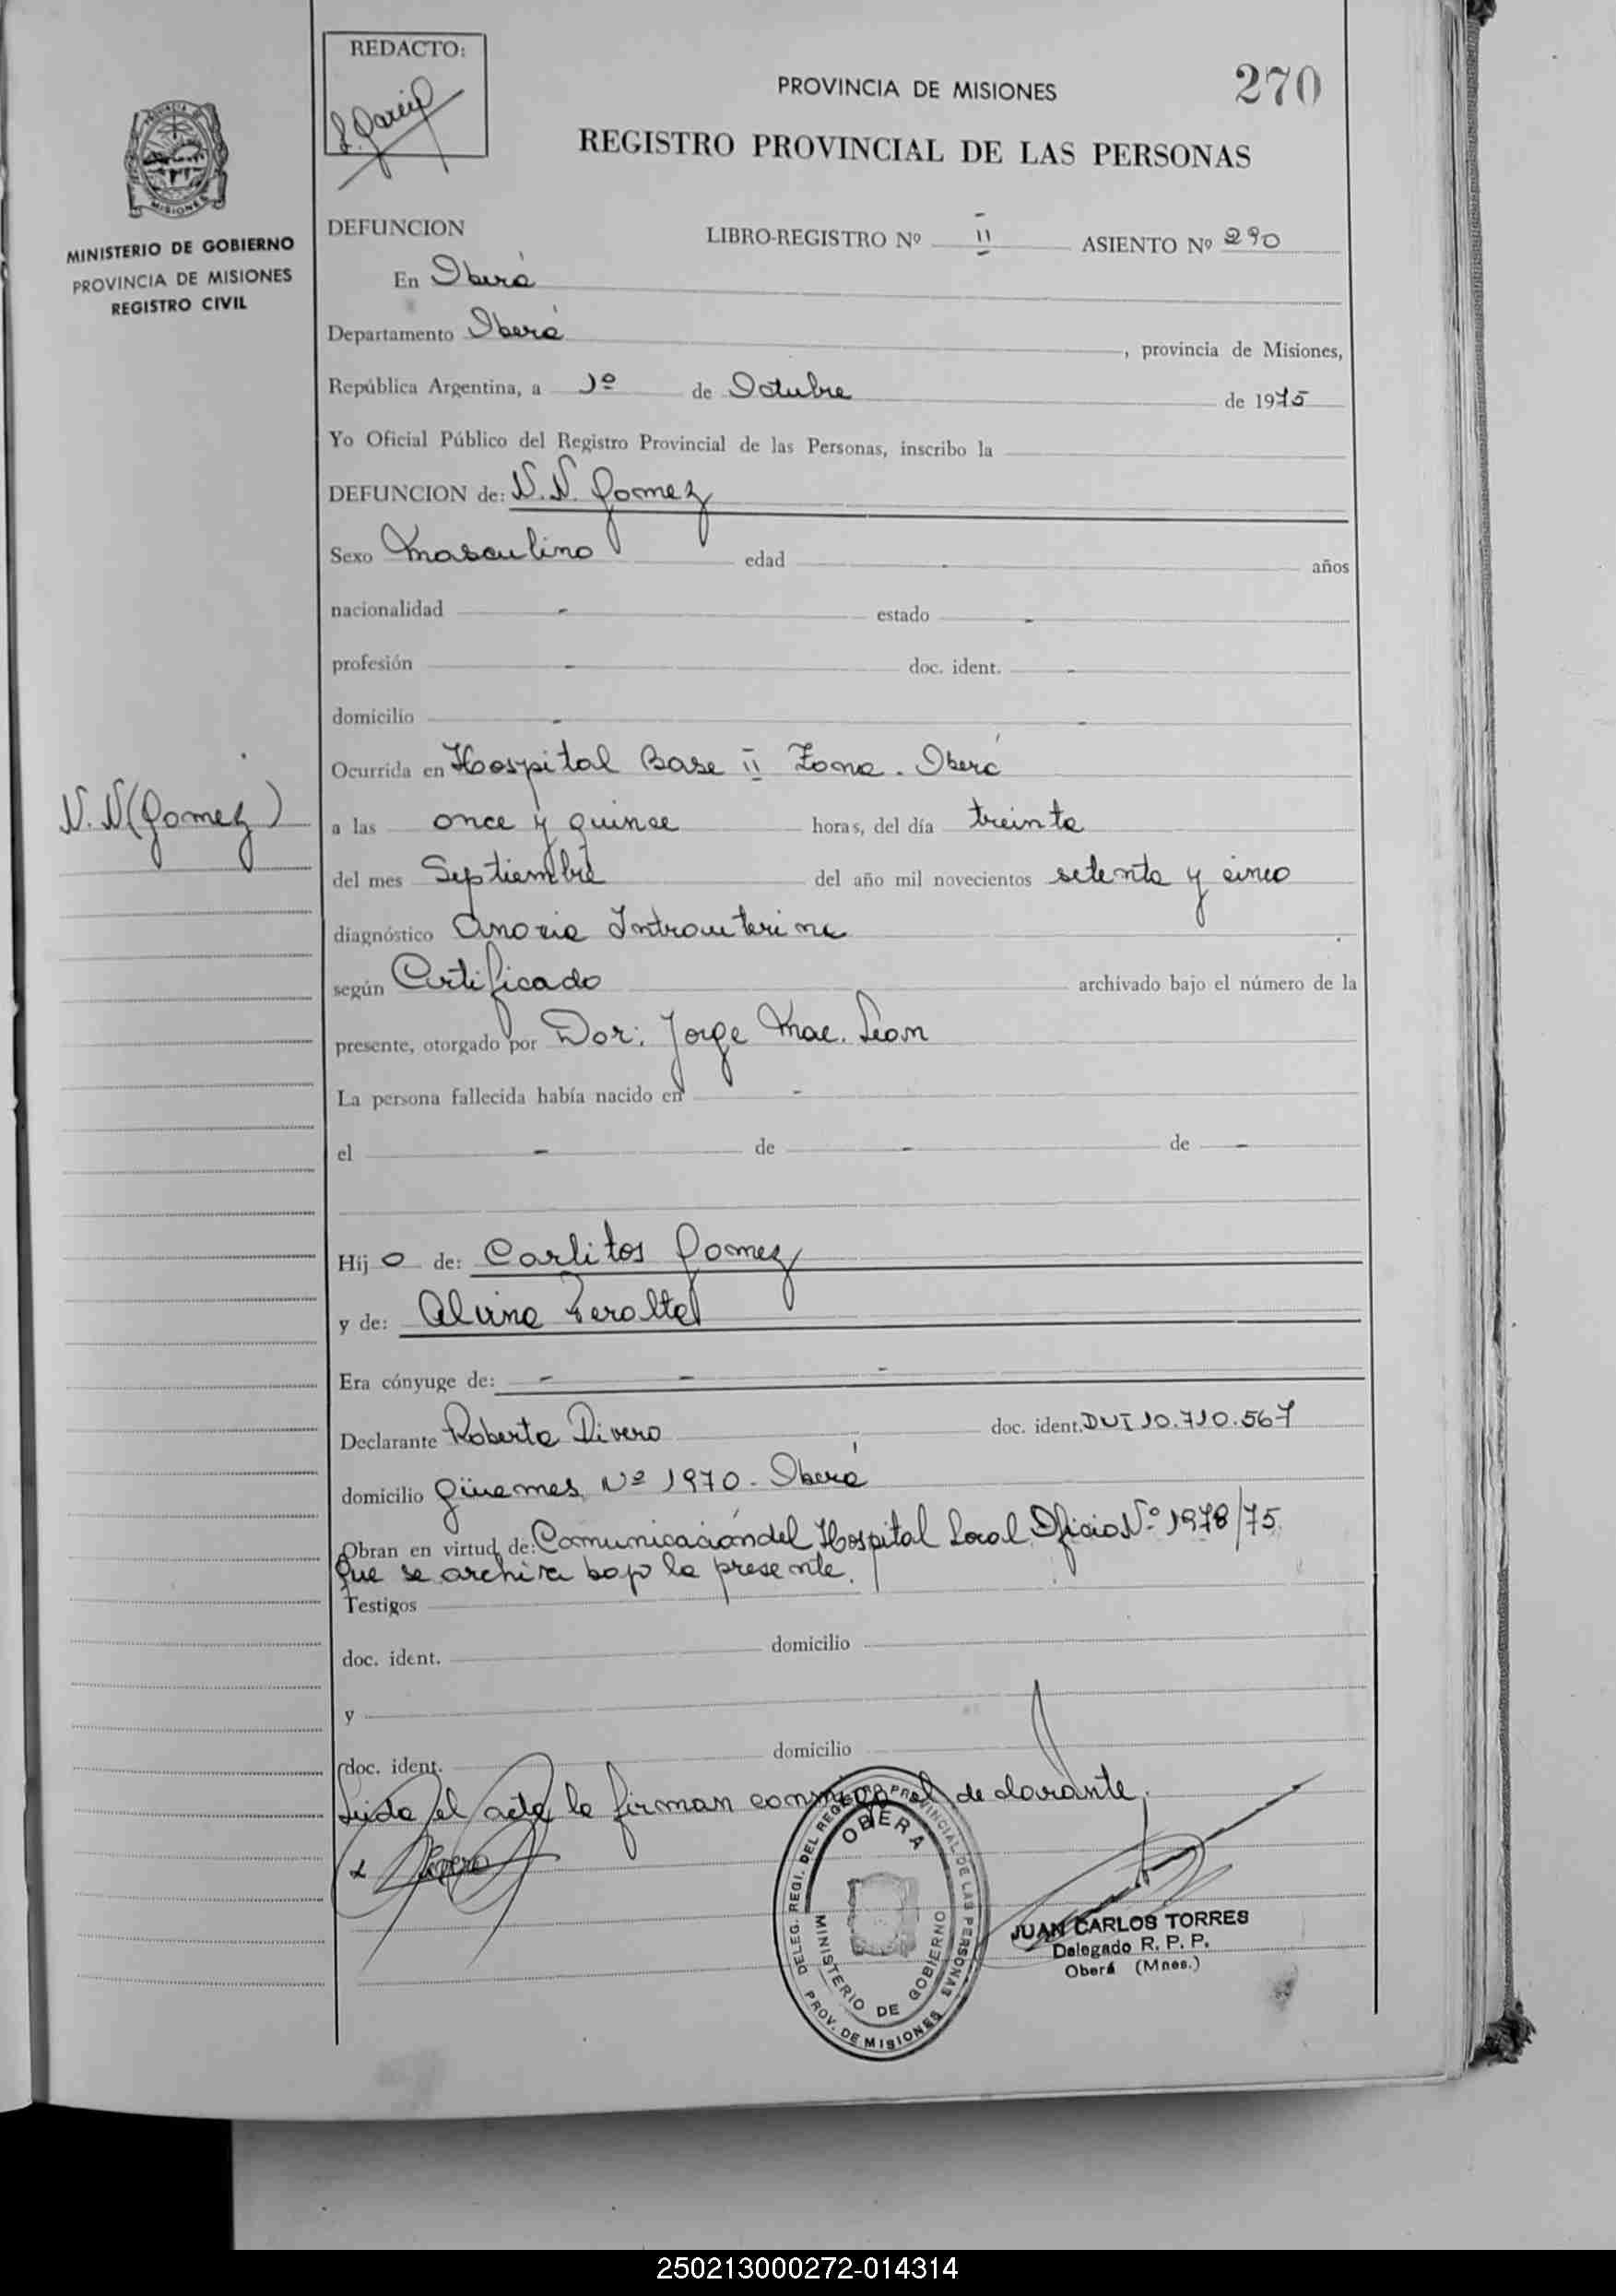 REDACTO:
PROVINCIA DE MISIONES
270
REGISTRO PROVINCIAL DE LAS PERSONAS
PROVINCIA
MISIONES
MINISTERIO DE GOBIERNO
PROVINCIA DE MISIONES
REGISTRO CIVIL
DEFUNCION LIBRO-REGISTRO Nº II ASIENTO Nº 290
En Oberá
Departamento Oberá, provincia de Misiones,
República Argentina, a 1º de Octubre de 1975
Yo Oficial Público del Registro Provincial de las Personas, inscribo la
DEFUNCION de: N.N. Gomez
Sexo Masculino edad - años
nacionalidad - estado -
profesión - doc. ident. -
domicilio - -
Ocurrida en Hospital Base II Zona - Oberá
N.N (Gomez)
a las once y quince horas, del día treinta
del mes Septiembre del año mil novecientos setenta y cinco
diagnóstico Anoxia Intrauterina
según Certificado archivado bajo el número de la
presente, otorgado por Dor: Jorge Mac. Lean
La persona fallecida había nacido en -
el - de - de -
Hijo de: Carlitos Gomez
y de: Alvina Peralta
Era cónyuge de: - - -
Declarante Roberta Rivero doc. ident. DUI 10.710.567
domicilio Güemes Nº 1970 - Oberá
Obran en virtud de: Comunicación del Hospital Local Oficio Nº 1978/75
Que se archiva bajo la presente.
Testigos
doc. ident. domicilio
y
doc. ident. domicilio
Leida el acta la firman conmigo el declarante.
Rivero
DELEG. REGI. DEL REGISTRO PROVINCIAL DE LAS PERSONAS
OBERA
MINISTERIO DE GOBIERNO
PROV. DE MISIONES
JUAN CARLOS TORRES
Delegado R. P. P.
Oberá (Mnes.)
250213000272-014314